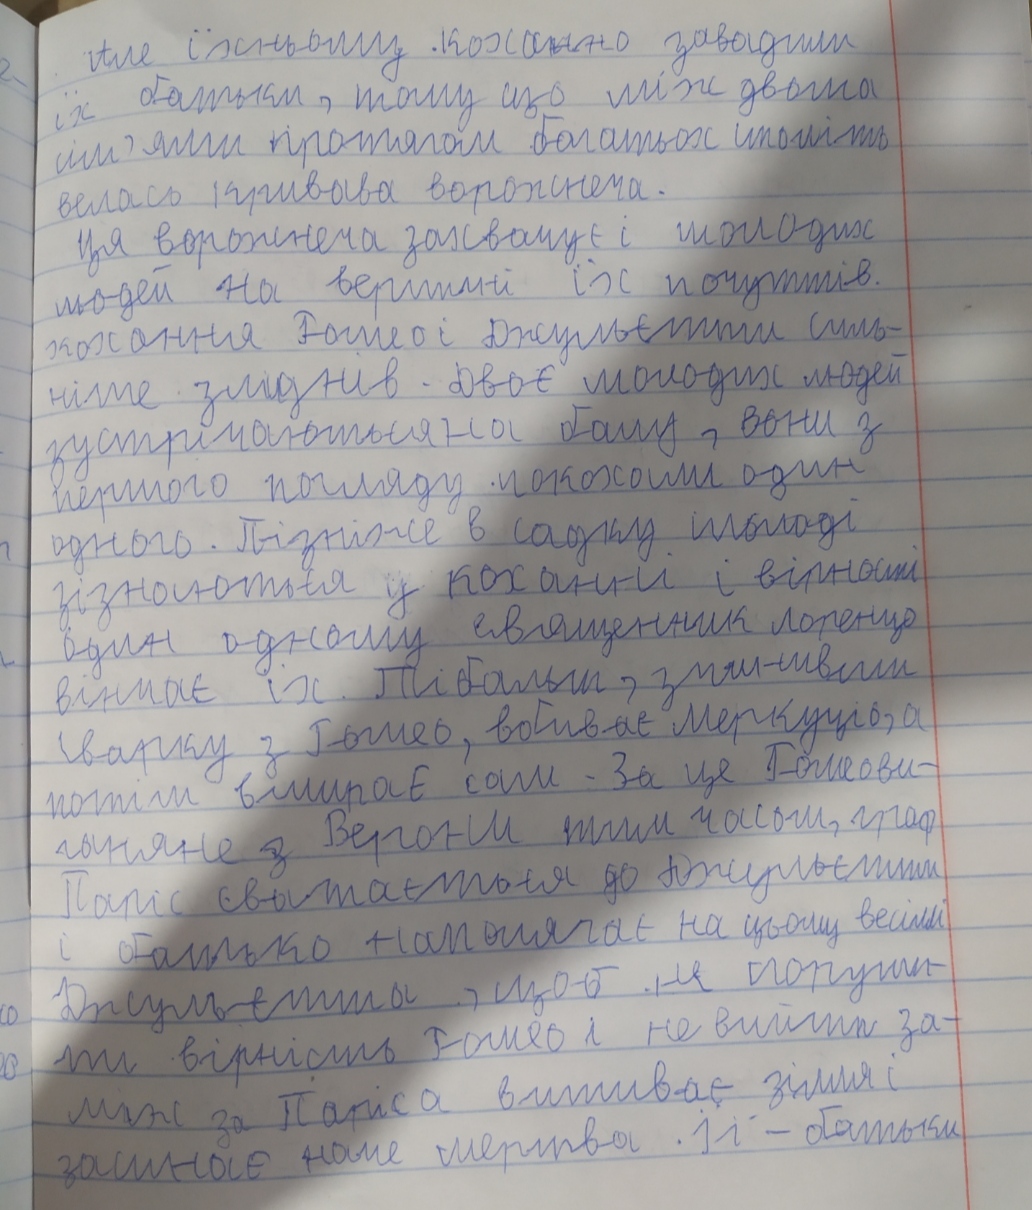 Але їхньому коханню завадили
їх батьки, тому що між двома
сім'ями протягом багатьох століть
велась кривава ворожнеча.
Ця ворожнеча захвачує і молодих
людей на вершині їх почуттів.
кохання Ромео і Джульєтти силь-
ніше злиднів. Двоє молодих людей
зустрічаються на балу, вони з
першого погляду покохали один
одного. Пізніже в садку молоді
зізнаються у коханні і вірності
один одному священник лоренцо
вінчає їх. Тібальт, зчинивши
сварку з Ромео, вбиває Меркуціо, а
потім вмирає сам. За це Ромео ви-
гыняне з Верони тим часом, граф
Паріс сватається до Джульєтти
і батько наполягає на цьому весіллі
Джульєтта, щоб не поруши-
ти вірність Ромео і не вийти за-
між за Паріса випиває зілля і
засинає наче мертва. Її - батьки